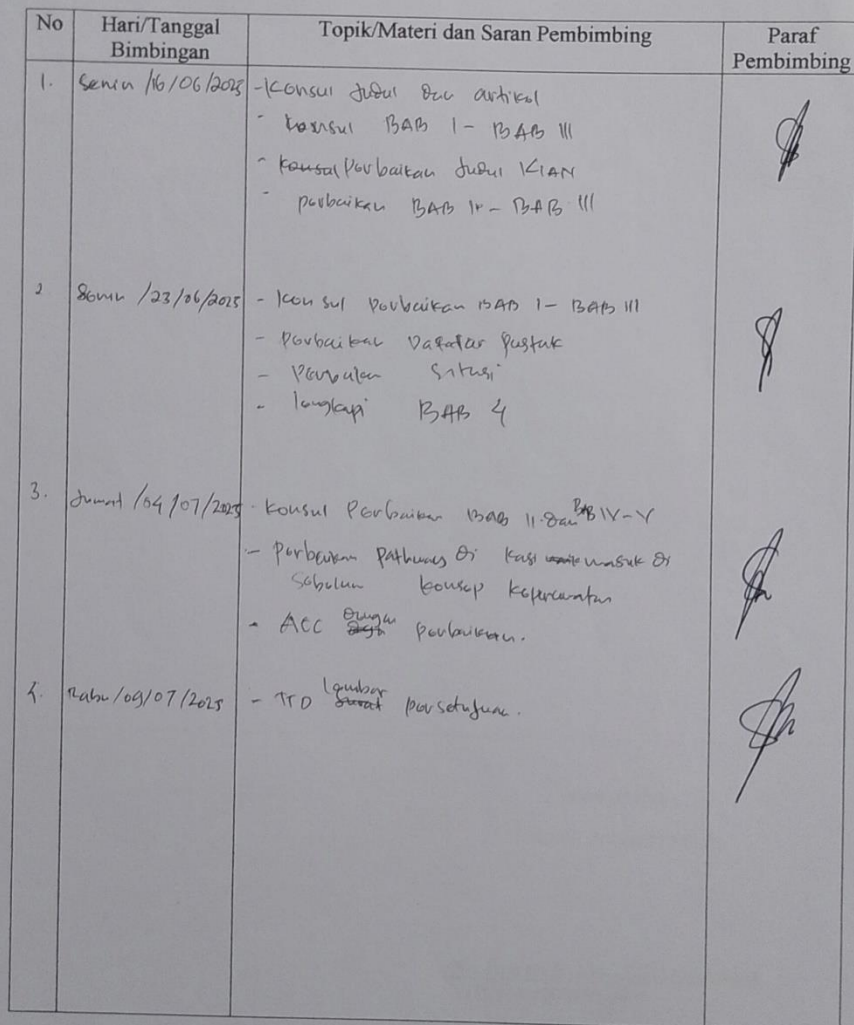 No Hari/Tanggal Bimbingan Topik/Materi dan Saran Pembimbing Paraf Pembimbing
1. Senin /16/06/2025 - Konsul Judul dan artikel
- konsul BAB I - BAB III
- konsul Perbaikan Judul KIAN
- perbaikan BAB II - BAB III
2 Senin /23/06/2025 - Konsul Perbaikan BAB I - BAB III
- Perbaikan Dafatar Pustak
- Sitasi
- lengkapi BAB 4
3. Jumat /04/07/2025 - Konsul Perbaikan BAB II dan BAB IV-V
- Perbaikan Pathways di kasi masuk di
Sebelum konsep Keperawatan
- ACC dengan perbaikan.
4. Rabu /09/07/2025 - TTD lembar surat persetujuan.